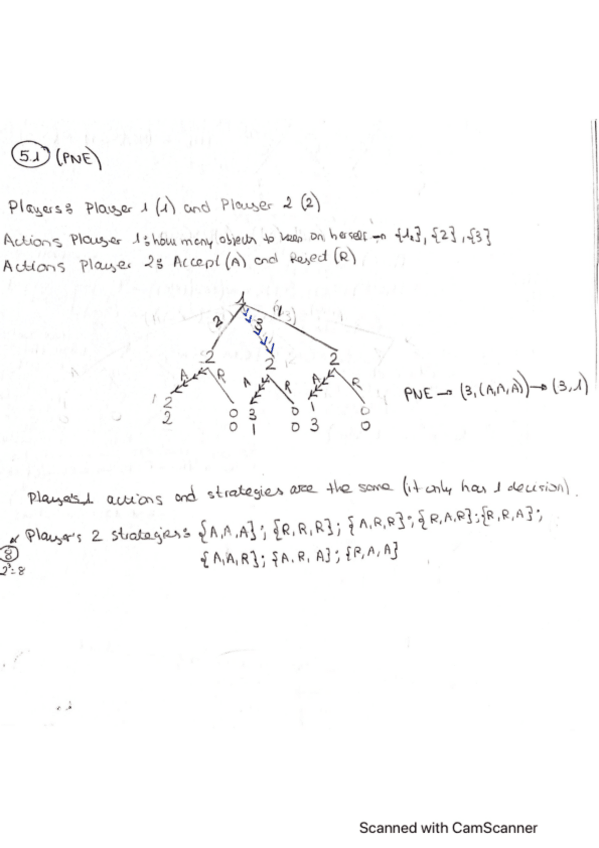 5.1 (PNE)
Players: Player 1 (1) and Player 2 (2)
Actions Player 1: how many objects to keep on herself → {1}, {2}, {3}
Actions Player 2: Accept (A) and Reject (R)
1
2 3
2 2 2
A R A R A R
2 0 3 0 1 0
2 0 1 0 3 0
PNE → (3, (A,A,A)) → (3,1)
Player's 1 actions and strategies are the same (it only has 1 decision).
Player's 2 strategies: {A,A,A}; {R,R,R}; {A,R,R}; {R,A,R}; {R,R,A};
8
2³=8
{A,A,R}; {A,R,A}; {R,A,A}
Scanned with CamScanner